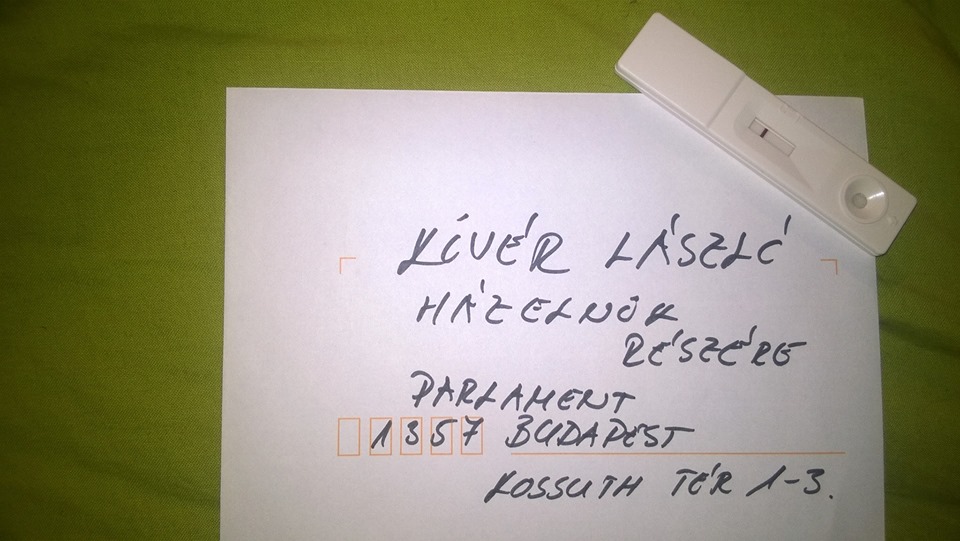 KÍVÉR LÁSZLÓ
HÁZELNÖK
RÉSZÉRE
PARLAMENT
1357 BUDAPEST
KOSSUTH TÉR 1-3.